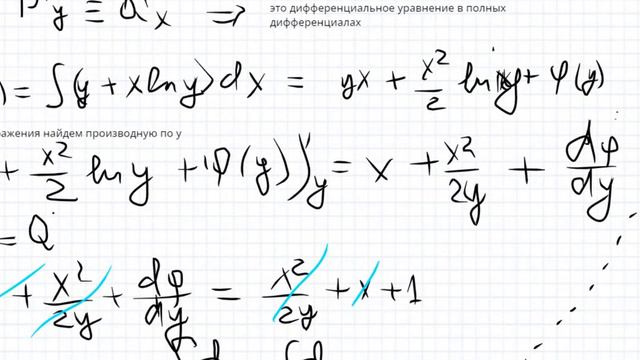 P'y ≡ Q'x ⇒ это дифференциальное уравнение в полных
дифференциалах
) = ∫(y + x ln y) dx = yx + x²/2 ln y + φ(y)
ражения найдем производную по y
+ x²/2 ln y + φ(y))'y = x + x²/2y + dφ/dy
= Q
+ x²/2y + dφ/dy = x²/2y + x + 1